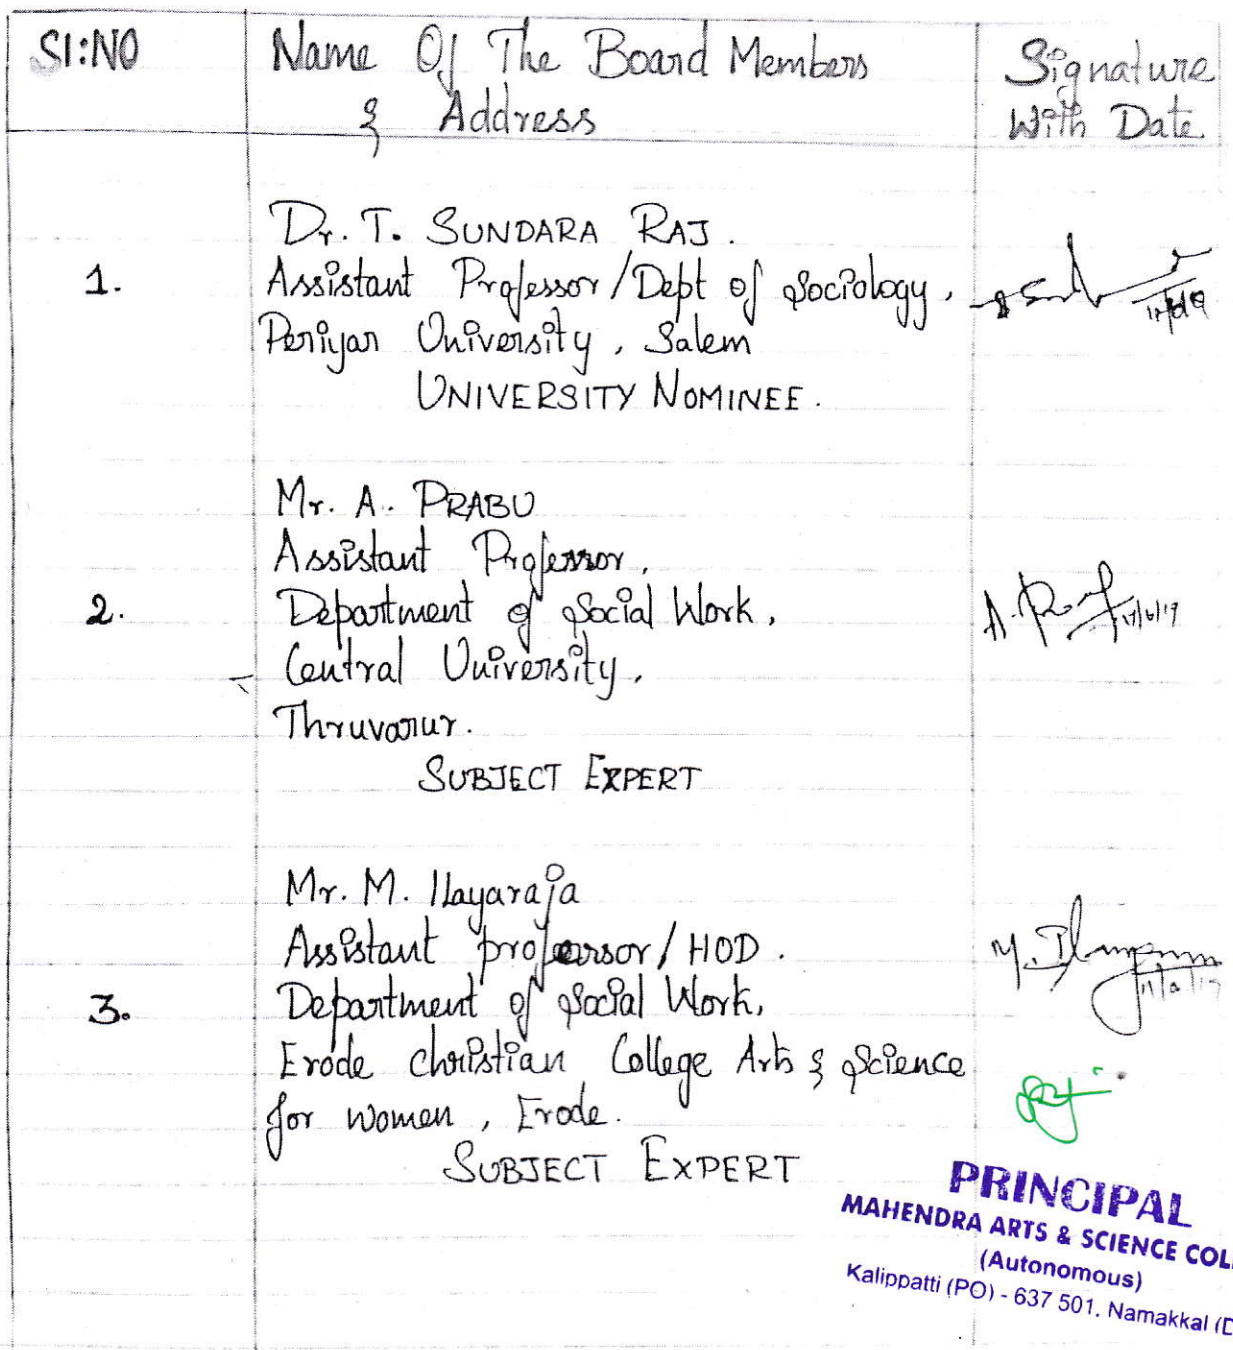 Sl:NO Name Of The Board Members Signature
& Address With Date
Dr. T. SUNDARA RAJ.
1. Assistant Professor/Dept of Sociology,
Periyar University, Salem
UNIVERSITY NOMINEE.
Mr. A. PRABU
Assistant Professor,
2. Department of Social Work,
Central University,
Thruvarur.
SUBJECT EXPERT
Mr. M. Ilayaraja
Assistant professor/HOD.
3. Department of Social Work,
Erode christian College Arts & Science
for women, Erode.
SUBJECT EXPERT
PRINCIPAL
MAHENDRA ARTS & SCIENCE COL
(Autonomous)
Kalippatti (PO) - 637 501. Namakkal (D